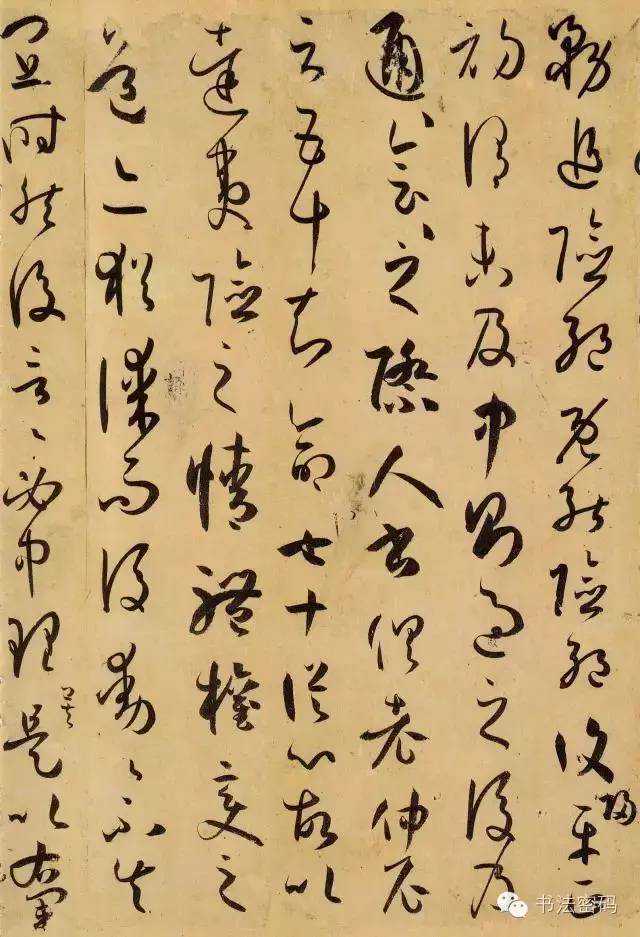 務追險絕既能險絕復歸平正
初謂未及中則過之後乃
通〻會〻之際人書俱老仲尼
云五十知命七十從心故以
達夷險之情體權變之
道亦猶謀而後動〻不失
宜時然後言〻必中理矣是以右軍
书法密码